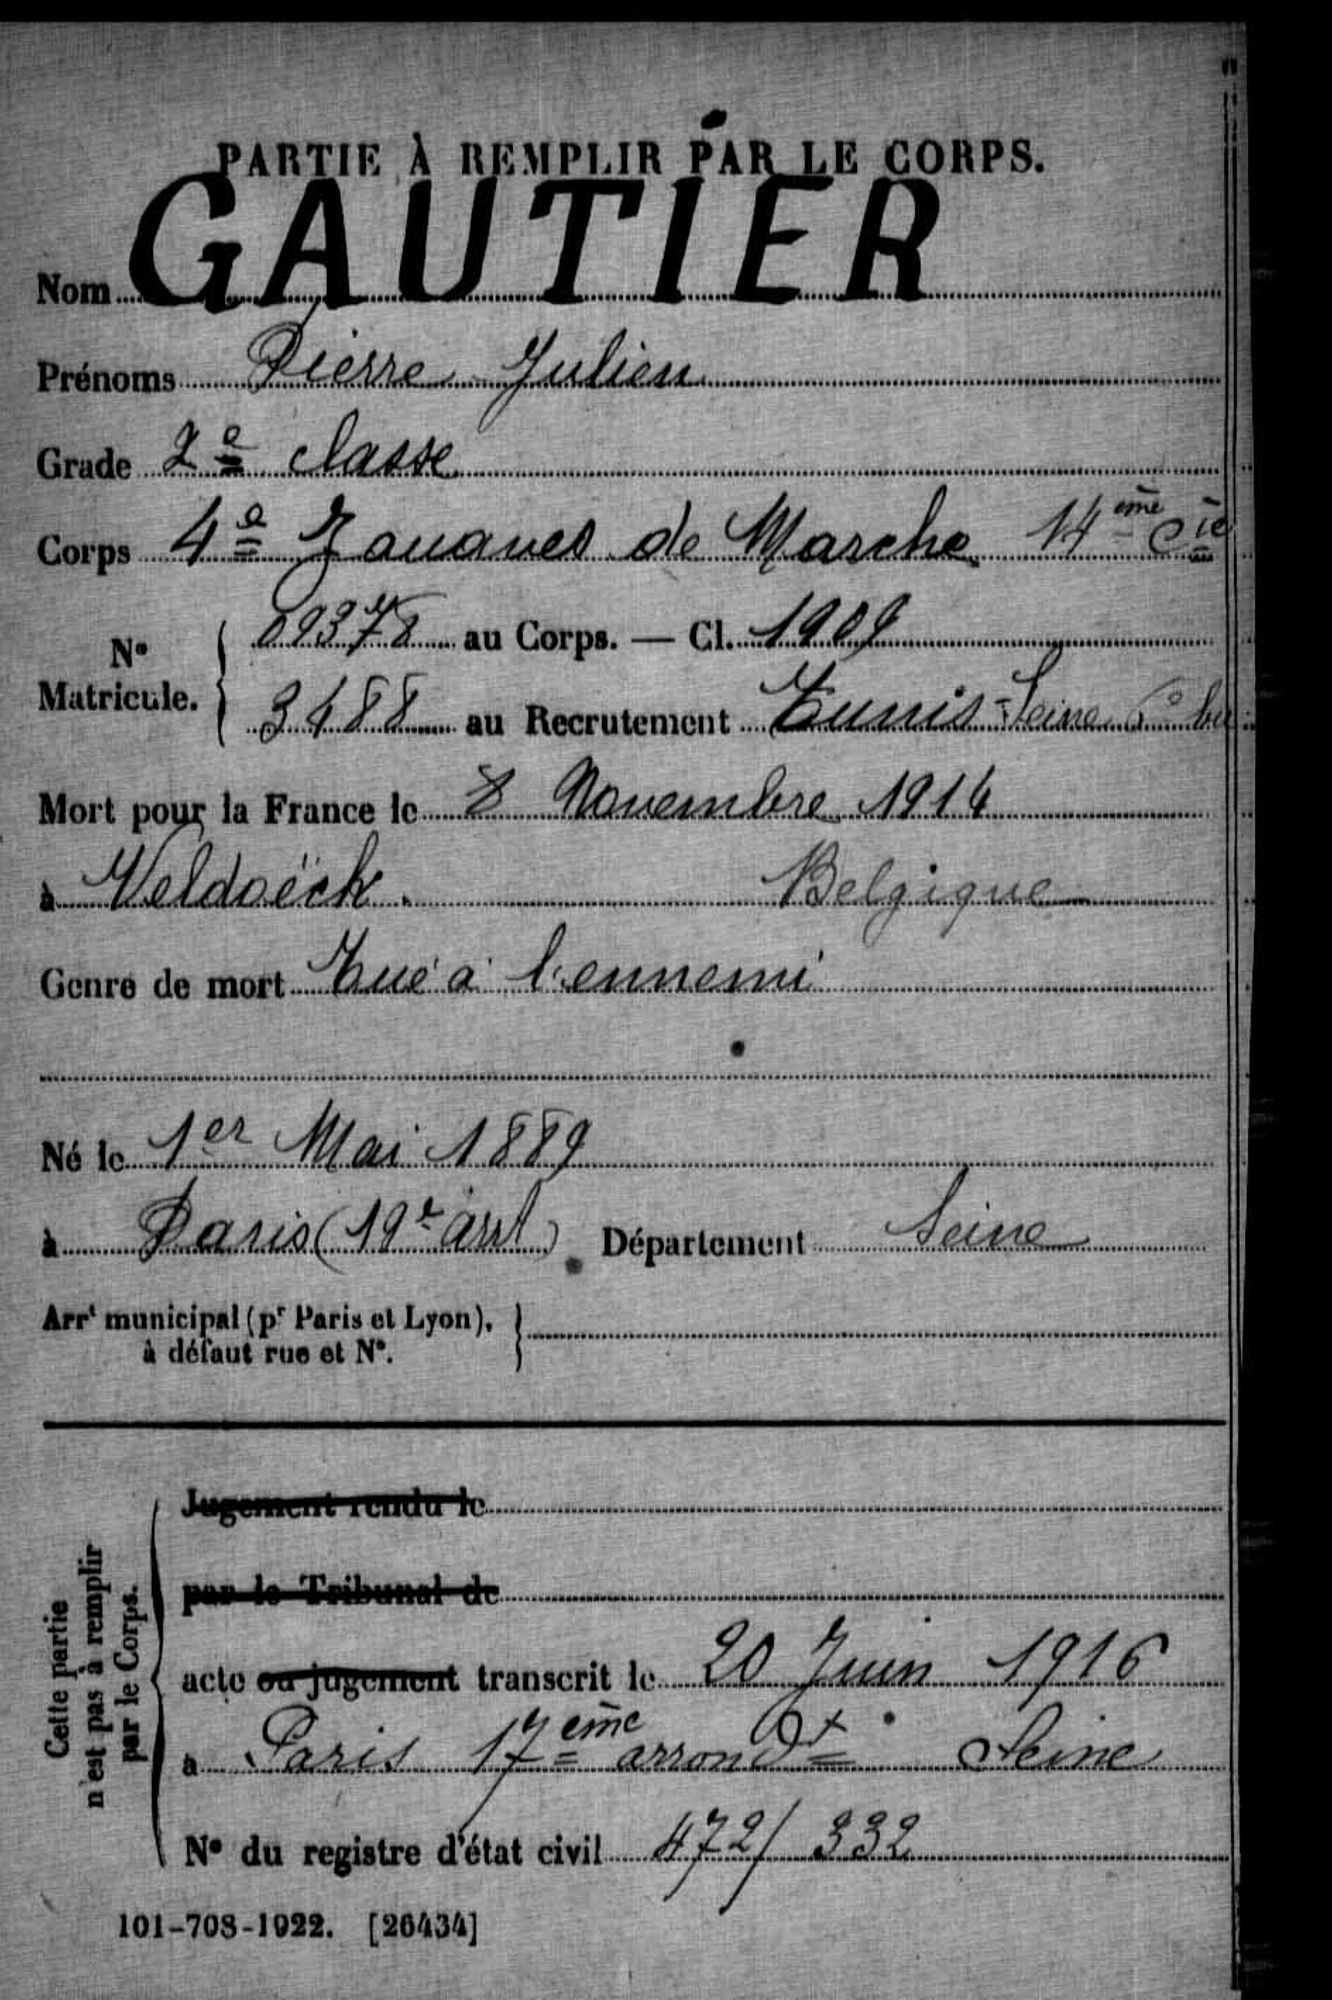 PARTIE À REMPLIR PAR LE CORPS.
Nom GAUTIER
Prénoms Pierre Julien
Grade 2e classe
Corps 4e Zouaves de Marche 14ème Cie
No Matricule. 09378 au Corps. — Cl. 1909
3488 au Recrutement Tunis - Seine 6e bu
Mort pour la France le 8 Novembre 1914
à Veldoëck. Belgique
Genre de mort Tué à l'ennemi
Né le 1er Mai 1889
à Paris (19e arrt) Département Seine
Arrt municipal (pr Paris et Lyon),
à défaut rue et No.
Cette partie
n'est pas à remplir
par le Corps.
Jugement rendu le
par le Tribunal de
acte ou jugement transcrit le 20 Juin 1916
à Paris 17ème arrondt Seine
No du registre d'état civil 472/332
101-708-1922. [26434]